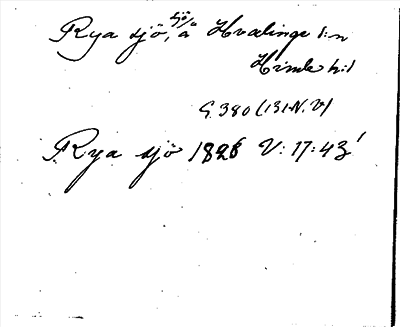 Rya sjö, sjö/å Hvalinge s:n
Himle h:d
S. 380 (131 N. V.)
Rya sjö 1826 V: 17: 43